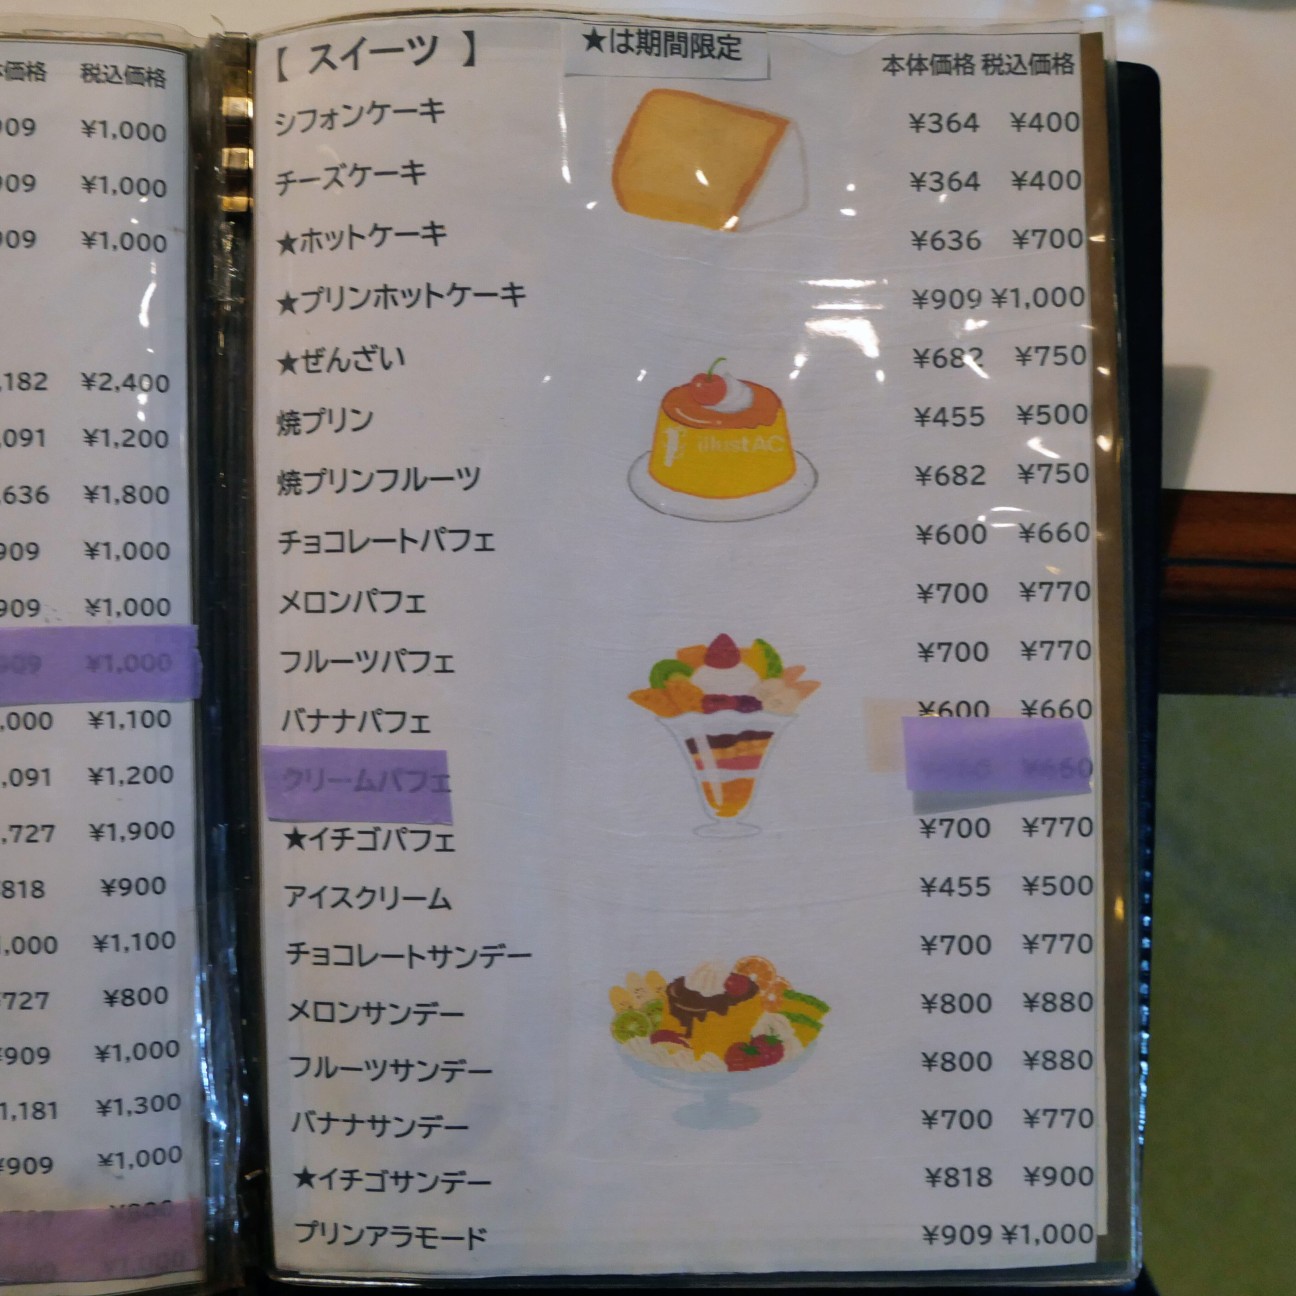 本体価格 税込価格
909 ¥1,000
909 ¥1,000
909 ¥1,000
,182 ¥2,400
,091 ¥1,200
,636 ¥1,800
909 ¥1,000
909 ¥1,000
909 ¥1,000
,000 ¥1,100
,091 ¥1,200
,727 ¥1,900
818 ¥900
,000 ¥1,100
727 ¥800
¥909 ¥1,000
1,181 ¥1,300
¥909 ¥1,000
¥800
【 スイーツ 】 ★は期間限定 本体価格 税込価格
シフォンケーキ ¥364 ¥400
チーズケーキ ¥364 ¥400
★ホットケーキ ¥636 ¥700
★プリンホットケーキ ¥909 ¥1,000
★ぜんざい ¥682 ¥750
焼プリン ¥455 ¥500
illustAC
焼プリンフルーツ ¥682 ¥750
チョコレートパフェ ¥600 ¥660
メロンパフェ ¥700 ¥770
フルーツパフェ ¥700 ¥770
バナナパフェ ¥600 ¥660
クリームパフェ ¥660
★イチゴパフェ ¥700 ¥770
アイスクリーム ¥455 ¥500
チョコレートサンデー ¥700 ¥770
メロンサンデー ¥800 ¥880
フルーツサンデー ¥800 ¥880
バナナサンデー ¥700 ¥770
★イチゴサンデー ¥818 ¥900
プリンアラモード ¥909 ¥1,000